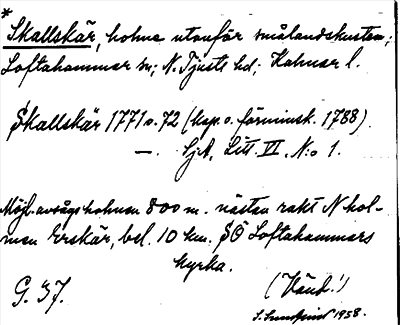 *
Skallskär, holme utanför smålandskusten;
Loftahammar sn; N. Tjusts hd; Kalmar l.
Skallskär 1771 o. 72 (kop. o. förminsk. 1788).
— . SjA, Litt. VI, N:o 1.
Möjl. avsågs holmen 800 m. nästan rakt N hol-
men Erskär, bel. 10 km. SÖ Loftahammars
kyrka.
G. 37.
(Vänd!)
1958.